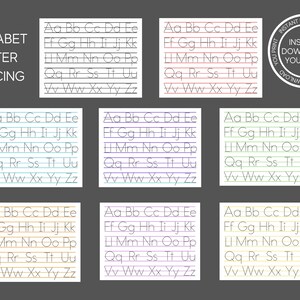 ABET
TER
CING
Aa Bb Cc Dd Ee
Ff Gg Hh Ii Jj Kk
Ll Mm Nn Oo Pp
Qq Rr Ss Tt Uu
Vv Ww Xx Yy Zz
Aa Bb Cc Dd Ee
Ff Gg Hh Ii Jj Kk
Ll Mm Nn Oo Pp
Qq Rr Ss Tt Uu
Vv Ww Xx Yy Zz
INS
DOW
YOU
a Bb Cc Dd Ee
f Gg Hh Ii Jj Kk
l Mm Nn Oo Pp
Qq Rr Ss Tt Uu
v Ww Xx Yy Zz
Aa Bb Cc Dd Ee
Ff Gg Hh Ii Jj Kk
Ll Mm Nn Oo Pp
Qq Rr Ss Tt Uu
Vv Ww Xx Yy Zz
Aa Bb Cc Dd E
Ff Gg Hh Ii Jj K
Ll Mm Nn Oo P
Qq Rr Ss Tt U
Vv Ww Xx Yy Z
a Bb Cc Dd Ee
f Gg Hh Ii Jj Kk
l Mm Nn Oo Pp
Qq Rr Ss Tt Uu
v Ww Xx Yy Zz
Aa Bb Cc Dd Ee
Ff Gg Hh Ii Jj Kk
Ll Mm Nn Oo Pp
Qq Rr Ss Tt Uu
Vv Ww Xx Yy Zz
Aa Bb Cc Dd E
Ff Gg Hh Ii Jj K
Ll Mm Nn Oo P
Qq Rr Ss Tt U
Vv Ww Xx Yy Z